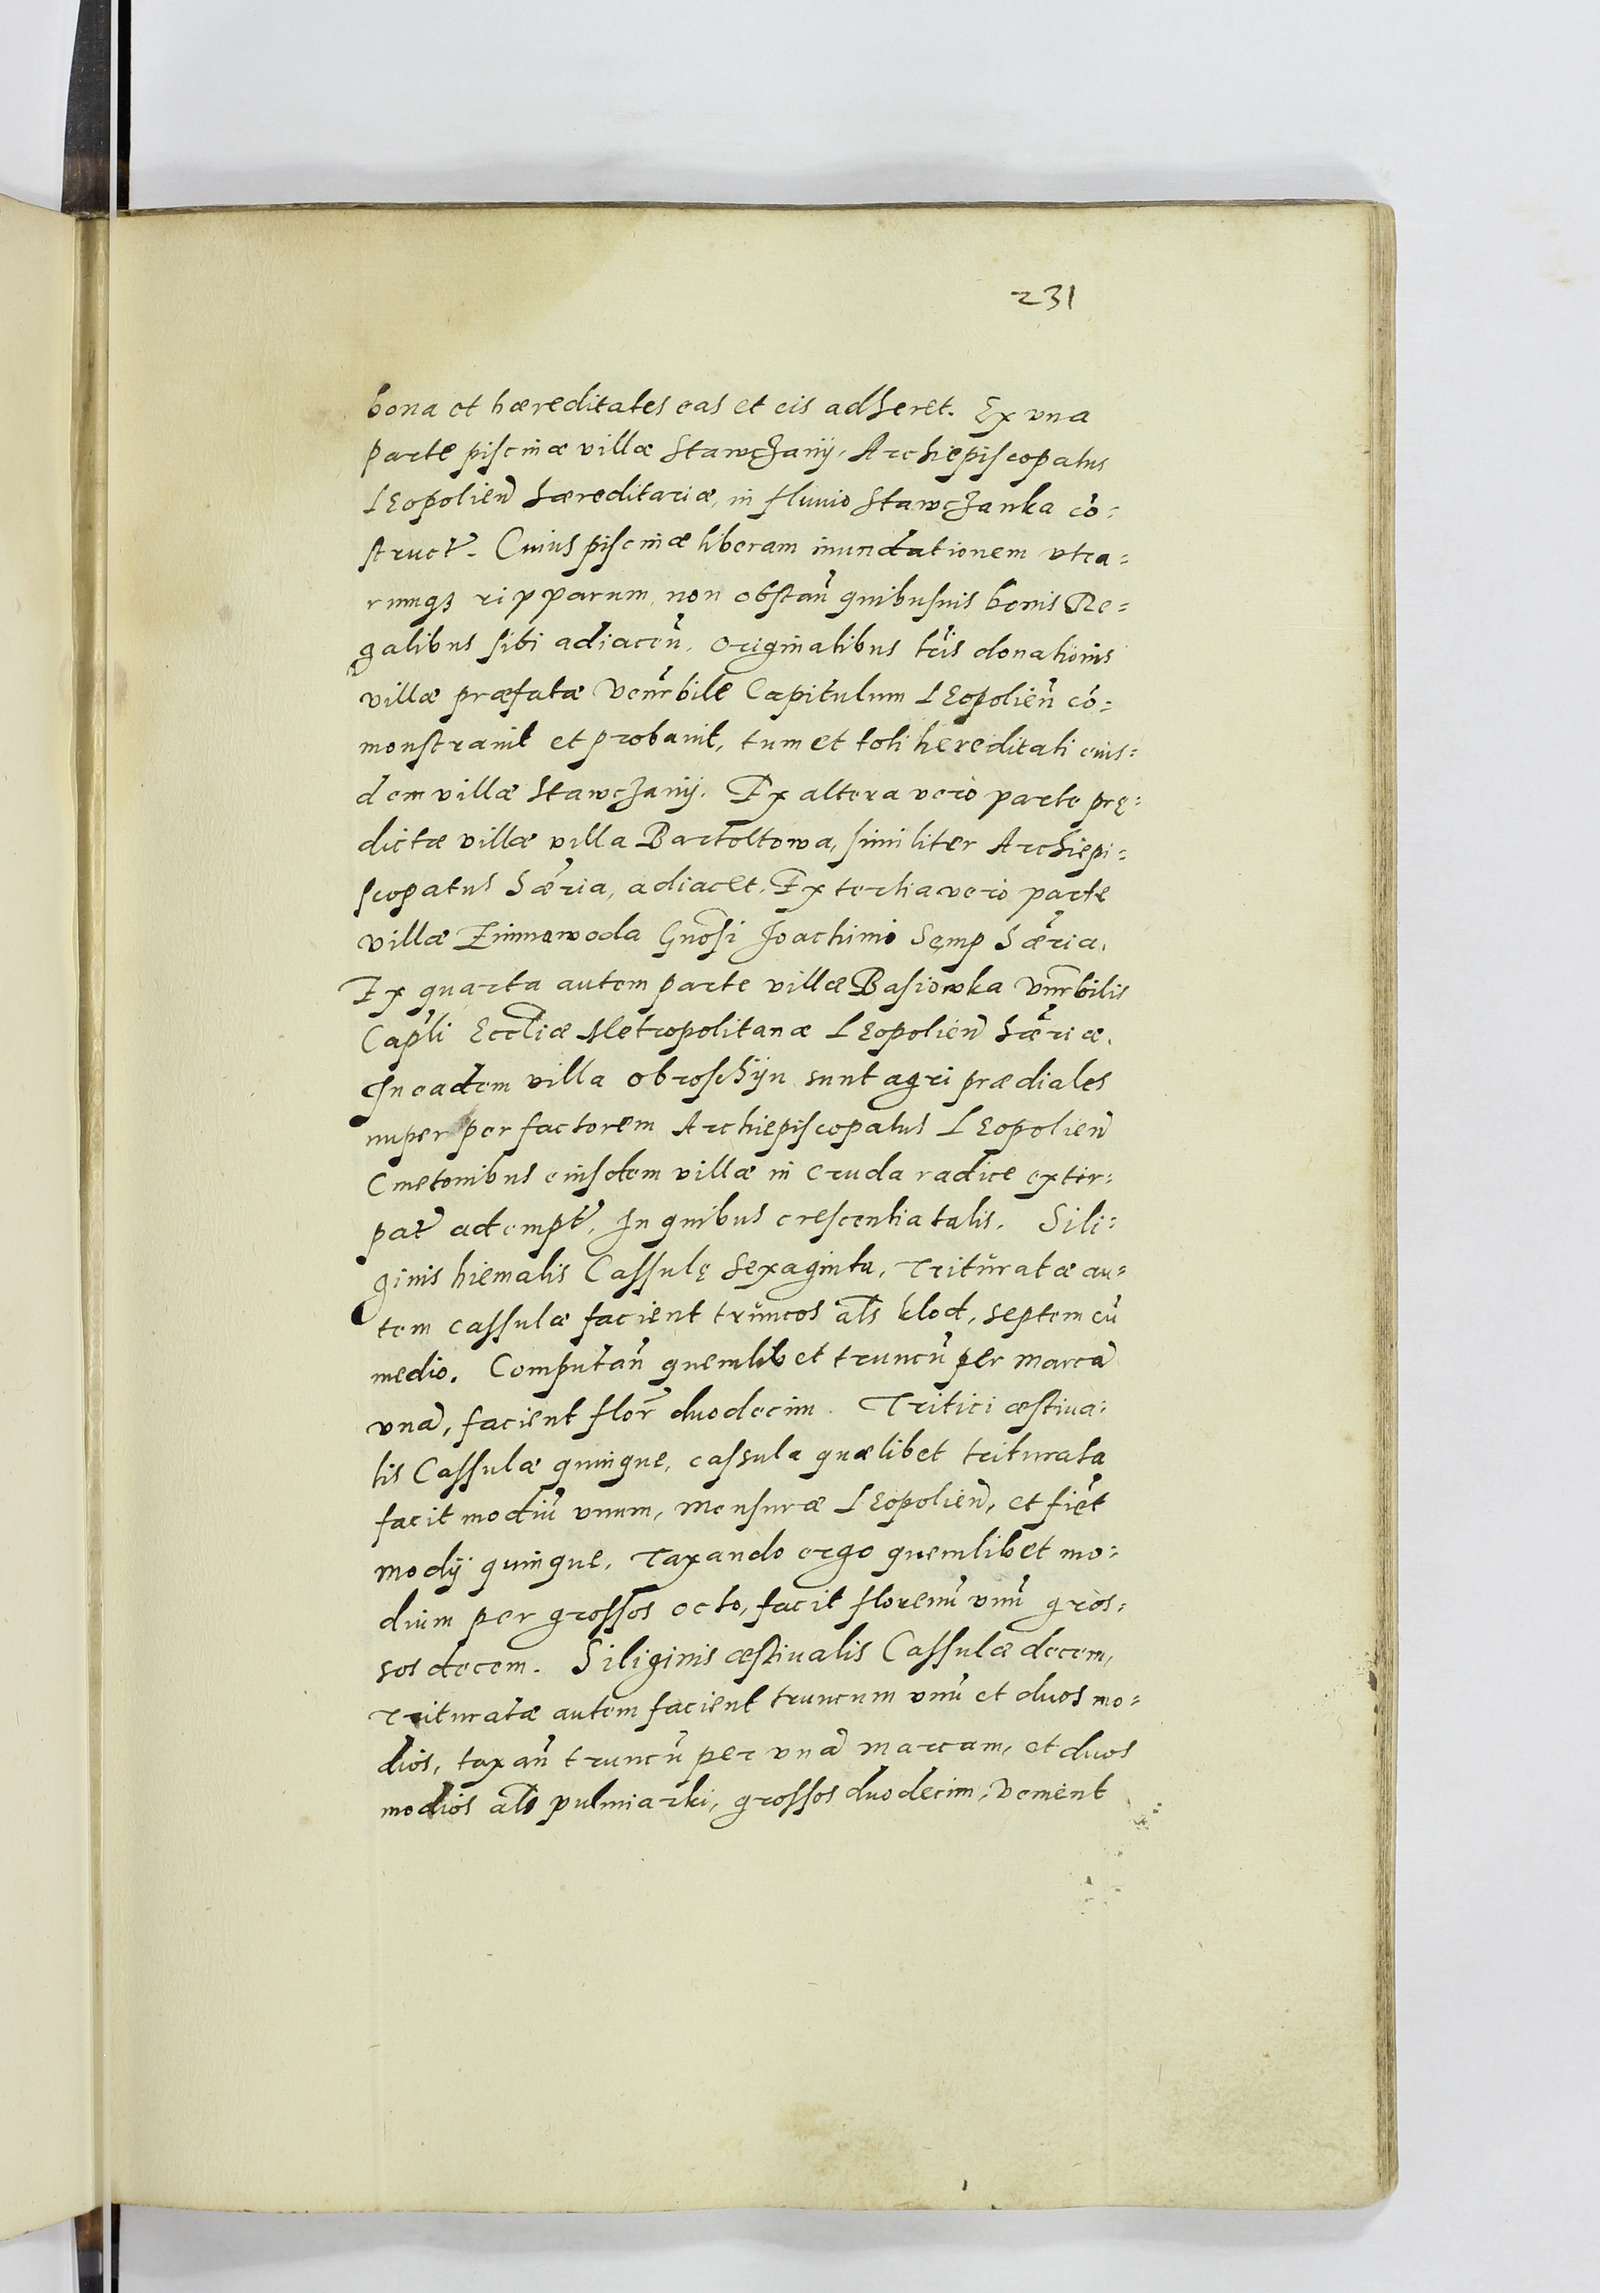 231
bona et hæreditates eas et eis adheret. Ex vna
parte piscinæ villæ Stawczanij, Archiepiscopatus
LEopolien̄ hæreditariæ, in fluuio Stawczanka cō=
struct̄. Cuius piscinæ liberam inundationem vtra=
rumqȝ ripparum, non obstan̄ quibusuis bonis Re=
galibus sibi adiacen̄, originalibus lr̄is donationis
villæ præfatæ Venr̄bile Capitulum LEopolien̄ cō=
monstrauit et probauit, tum et toti hereditati eius=
dem villæ Stawczanij. Ex altera verò parte prę=
dictæ villæ villa Bartoltowa, similiter Archiepi=
scopatus hær̄ia, adiacet. Ex tertia verò parte
villæ Zimnawoda Gnosi Joachimi Semp hær̄ia.
Ex quarta autem parte villæ Basiowka Vnr̄bilis
Capl̄i Eccl̄iæ Metropolitanæ LEopolien̄ hær̄iæ.
In eadem villa obroschijn sunt agri prædiales
nuper per factorem Archiepiscopatus LEopolien̄
Cmetonibus eiusdem villæ in cruda radice extir=
pat̄ adempt̄. In quibus crescentia talis. Sili=
ginis hiemalis Cassulę sexaginta, Trituratæ au=
tem cassulæ facient truncos al̄s klod, septem cū
medio. Computan̄ quemlibet truncū per marcā
vnā, facient flor̄ duodecim. Tritici æstiua=
lis Cassulæ quinque, cassula quælibet triturata
facit modiū vnum, mensuræ LEopolien̄, et fiēt
modij quinque, Taxando ergo quemlibet mo=
dium per grossos octo, facit florenū vnū gros=
sos decem. Siliginis æstiualis Cassulæ decem,
Trituratæ autem facient truncum vnū et duos mo=
dios, taxan̄ truncū per vnā marcam, et duos
modios al̄s pulmiarki, grossos duodecim, Venient